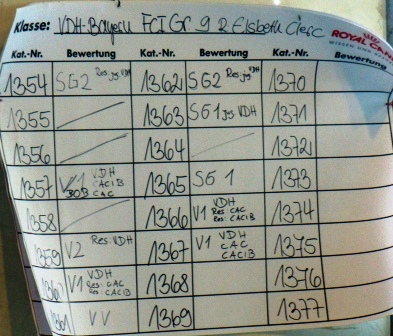 Klasse: VDH-Bayern FCI Gr 9 R Elsbeth Clerc
ROYAL CANIN
Kat.-Nr. Bewertung Kat.-Nr. Bewertung Kat.-Nr. Bewertung
1354 SG2 Res. jg VDH 1362 SG2 Res. jg VDH 1370
1355 1363 SG1 jg VDH 1371
1356 1364 1372
1357 V1 VDH CACIB CAC BOB 1365 SG 1 1373
1358 1366 V1 VDH Res: CAC Res: CACIB 1374
1359 V2 Res: VDH 1367 V1 VDH CAC CACIB 1375
1360 V1 VDH Res: CAC Res: CACIB 1368 1376
1361 VV 1369 1377